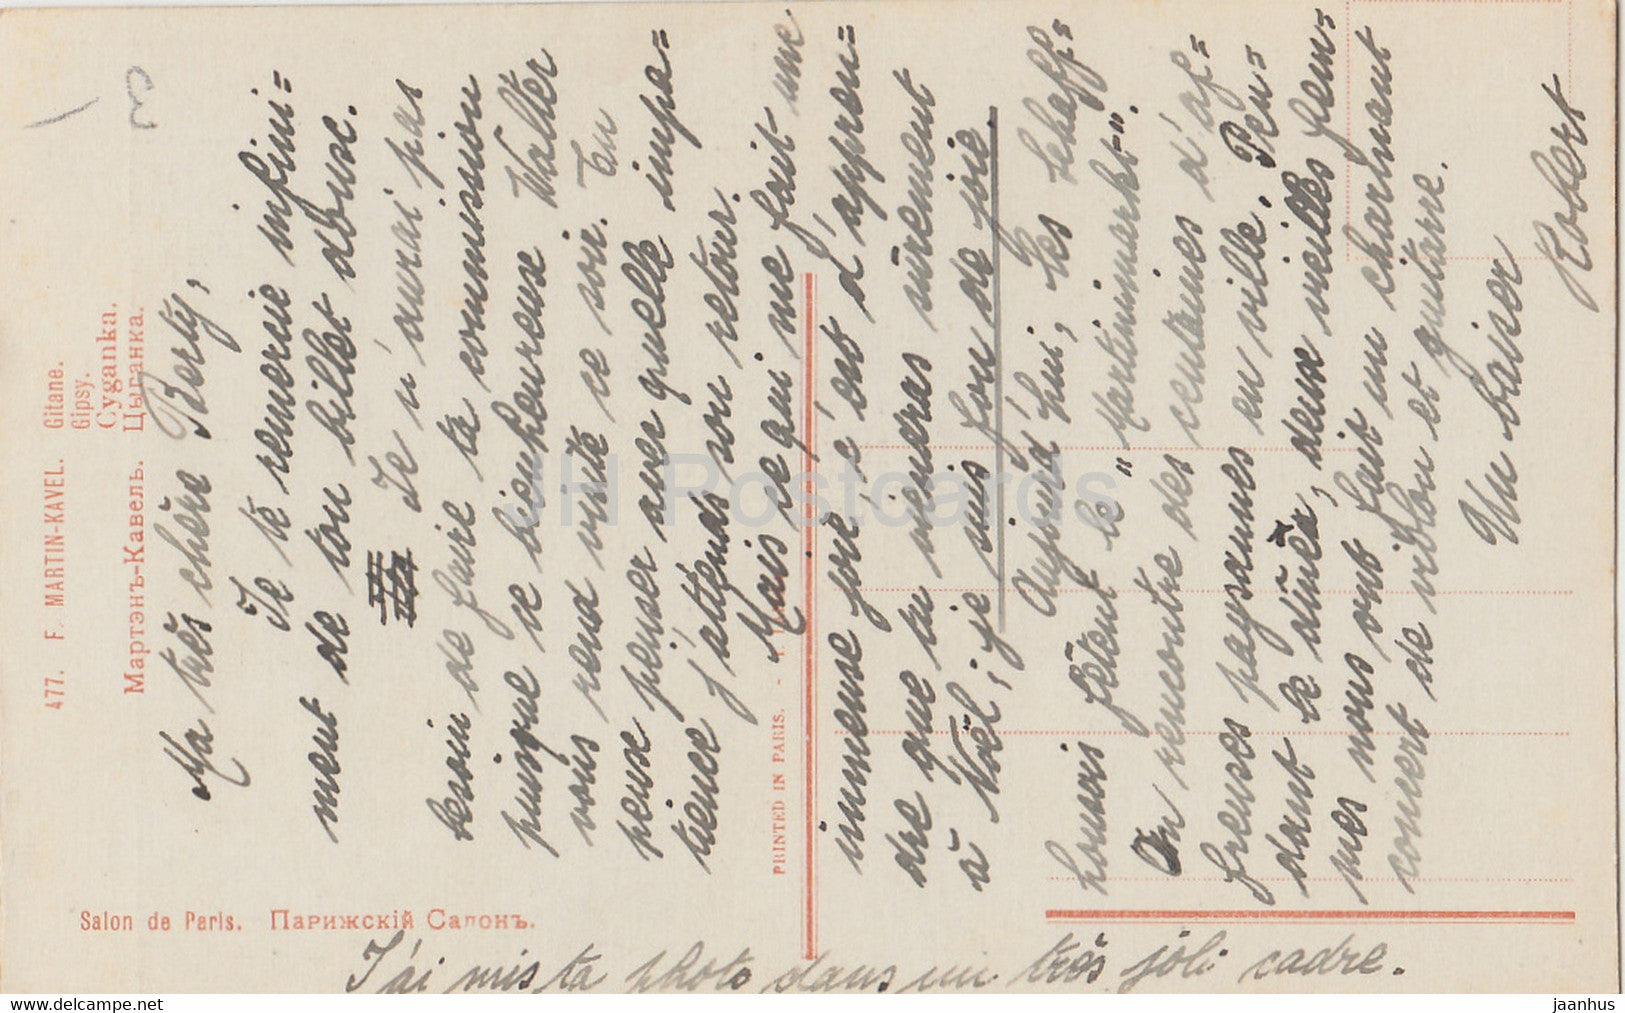 477. F. MARTIN-KAVEL. Gitane.
Gipsy.
Cyganka.
Мартэнъ-Кавель. Цыганка.
Salon de Paris. Парижскій Салонъ.
PRINTED IN PARIS. -
Ma très chère Berty,
Je te remercie infini=
ment de ton billet doux.
Je n'aurai pas
besoin de faire ta commission
puisque ce bienheureux Walter
vous rend visite ce soir. Tu
peux penser avec quelle impa=
tience j'attends son retour.
Mais ce qui me fait une
immense joie, c'est d'appren=
dre que tu viendras sûrement
à Noël; je suis fou de joie.
Aujourd'hui, les Schaff=
housois fêtent le "Martinimarkt".
On rencontre des centaines d'af=
freuses paysannes en ville. Pen=
dant le dîner, deux vieilles fem=
mes nous ont fait un charmant
concert de violon et guitarre.
Un baiser
Robert
J'ai mis ta photo dans un très joli cadre.
JH Postcards
www.delcampe.net
jaanhus